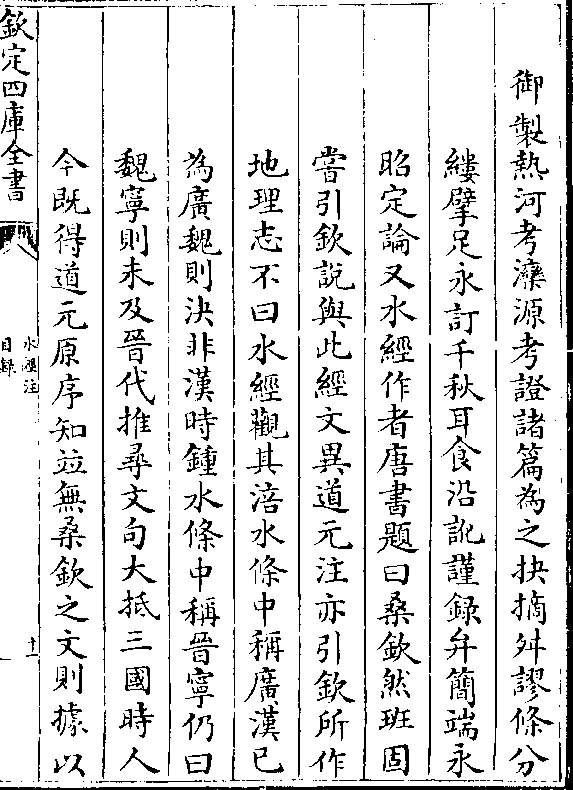 御製熱河考灤源考證諸篇為之抉摘舛謬條分
縷擘足永訂千秋耳食沿訛謹録弁簡端永
昭定論又水經作者唐書題曰桑欽然班固
嘗引欽說與此經文異道元注亦引欽所作
地理志不曰水經觀其涪水條中稱廣漢已
為廣魏則決非漢時鍾水條中稱晉寧仍曰
魏寧則未及晉代推尋文句大抵三國時人
今既得道元原序知並無桑欽之文則據以
欽定四庫全書
水經注
目録
十一